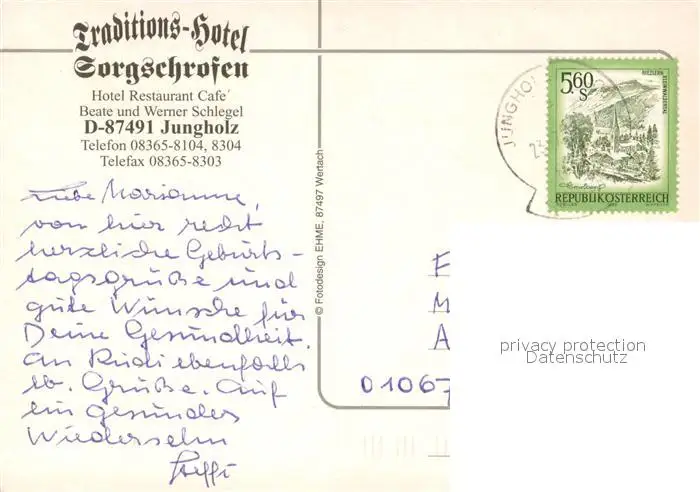 Traditions-Hotel
Sorgschrofen
Hotel Restaurant Cafe´
Beate und Werner Schlegel
D-87491 Jungholz
Telefon 08365-8104, 8304
Telefax 08365-8303
Liebe Marianne,
von hier recht
herzliche Geburts-
tagsgrüße und
gute Wünsche für
Deine Gesundheit.
An Rudi ebenfalls
lb. Grüße. Auf
ein gesundes
Wiedersehn
Steffi
© Fotodesign EHME, 87497 Wertach
JUNGHOL
23.
5.60
S
RIEZLERN
KLEINWALSERTAL
REPUBLIK ÖSTERREICH
E
M
A
01067
privacy protection
Datenschutz